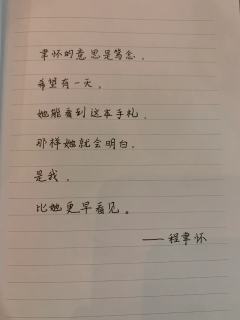 聿怀的意思是笃念，
希望有一天，
她能看到这本手札，
那样她就会明白，
是我，
比她更早看见。
——程聿怀